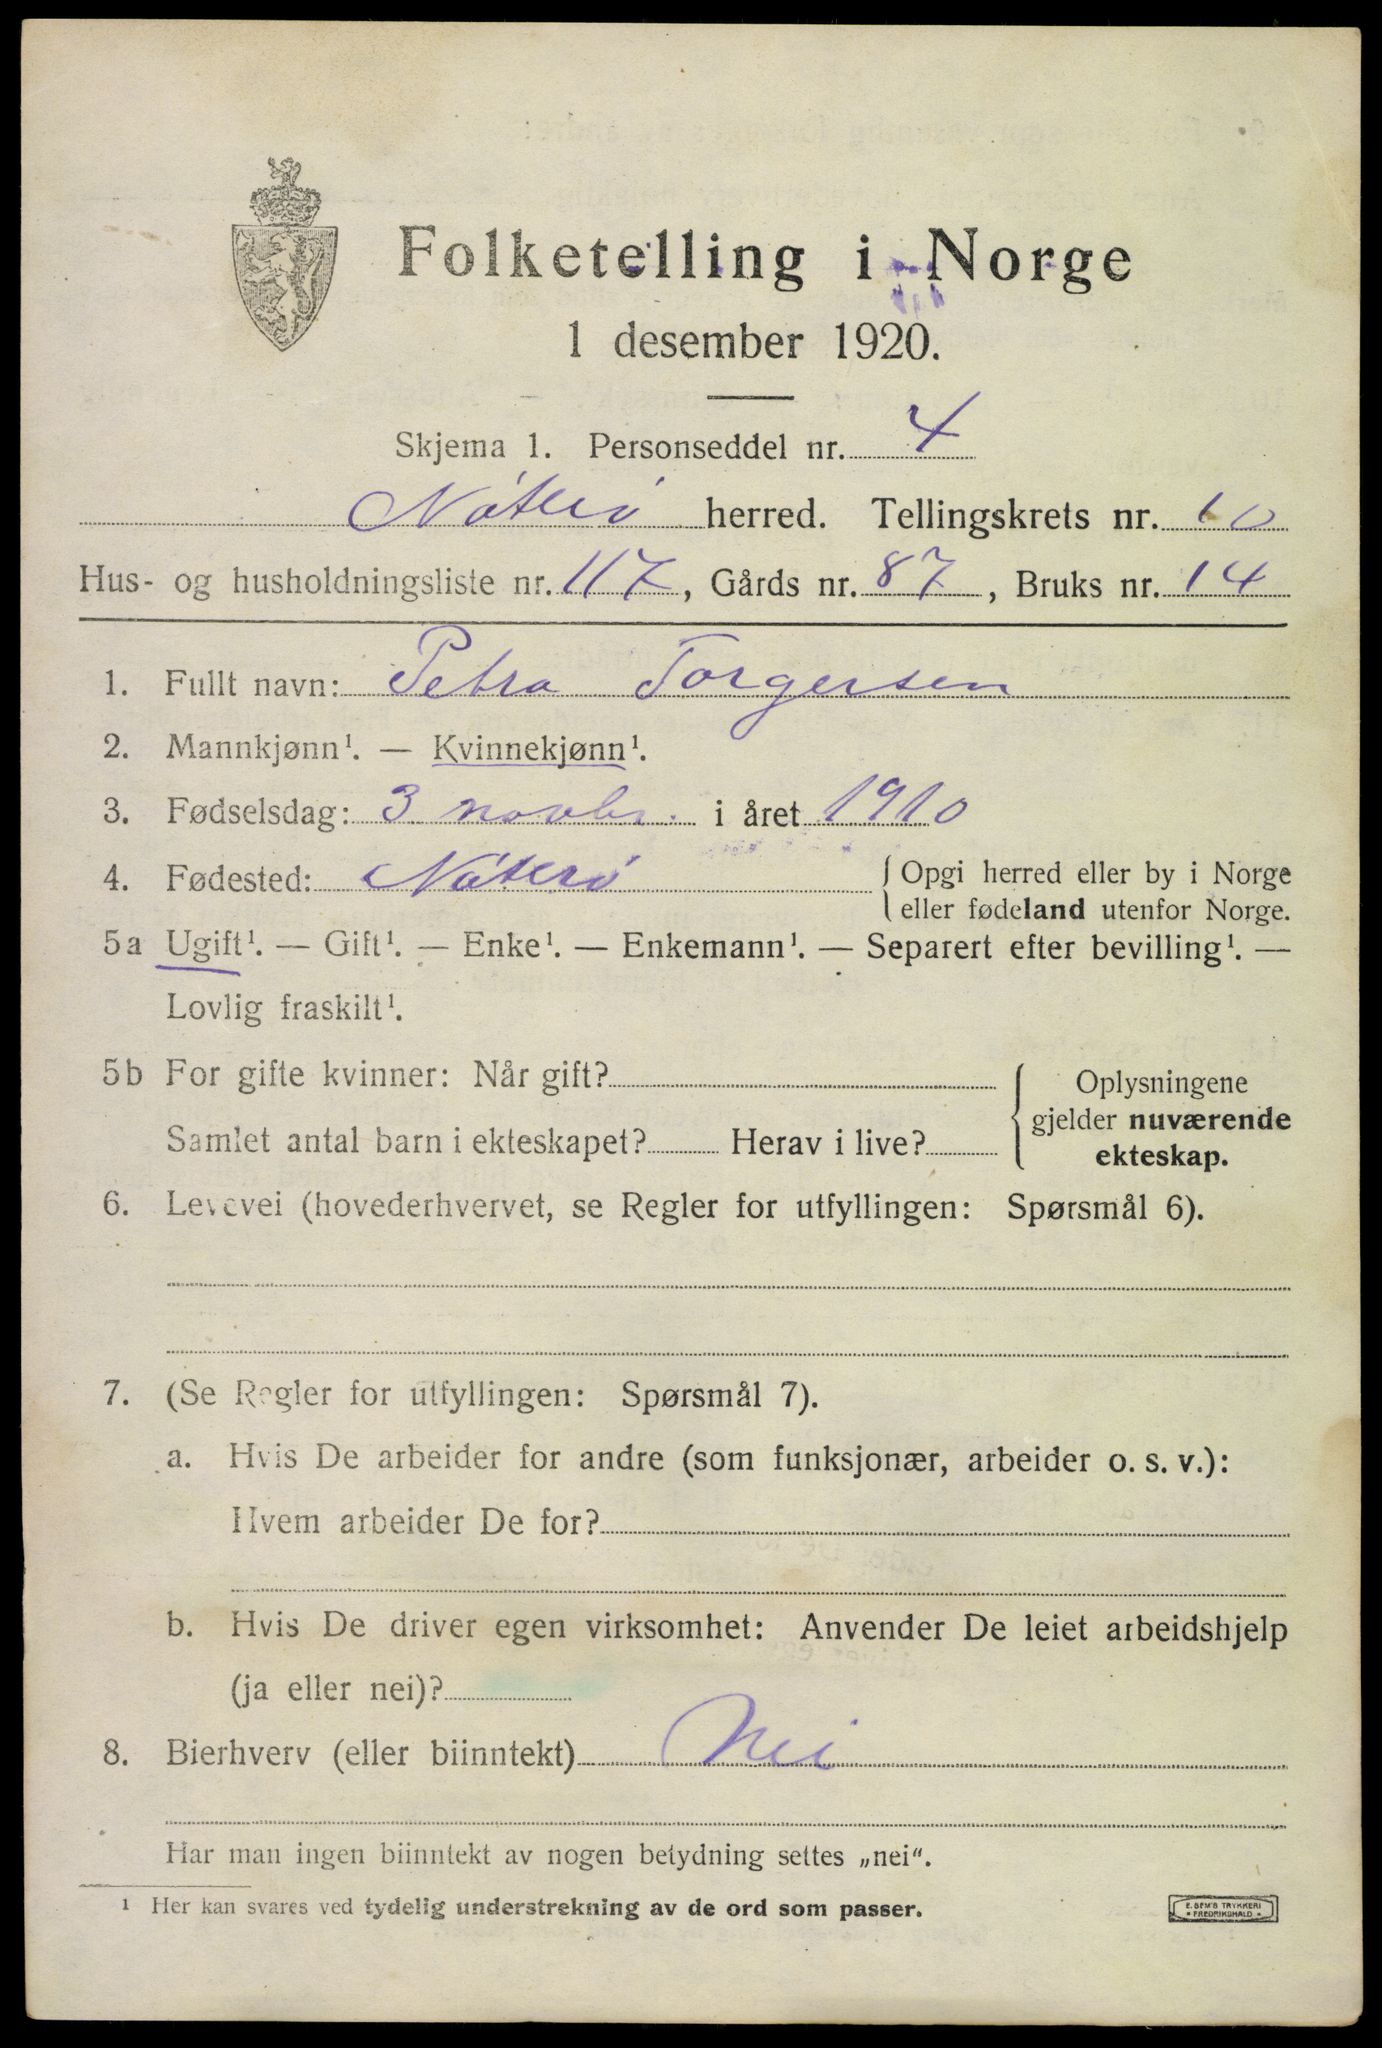 Folketelling i Norge
1 desember 1920.
Skjema 1. Personseddel nr. 4
Nøterø herred. Tellingskrets nr. 10
Hus- og husholdningsliste nr. 117, Gårds nr. 87, Bruks nr. 14
1. Fullt navn: Petra Torgersen
2. Mannkjønn¹. — Kvinnekjønn¹.
3. Fødselsdag: 3 novbr. i året 1910
4. Fødested: Nøterø { Opgi herred eller by i Norge
eller fødeland utenfor Norge.
5a Ugift¹. — Gift¹. — Enke¹. — Enkemann¹. — Separert efter bevilling¹. —
Lovlig fraskilt¹.
5b For gifte kvinner: Når gift?
Samlet antal barn i ekteskapet? Herav i live?
Oplysningene
gjelder nuværende
ekteskap.
6. Levevei (hovederhvervet, se Regler for utfyllingen: Spørsmål 6).
7. (Se Regler for utfyllingen: Spørsmål 7).
a. Hvis De arbeider for andre (som funksjonær, arbeider o. s. v.):
Hvem arbeider De for?
b. Hvis De driver egen virksomhet: Anvender De leiet arbeidshjelp
(ja eller nei)?
8. Bierhverv (eller biinntekt) Nei
Har man ingen biinntekt av nogen betydning settes „nei".
¹ Her kan svares ved tydelig understrekning av de ord som passer.
E. SEM'S TRYKKERI
* FREDRIKSHALD *